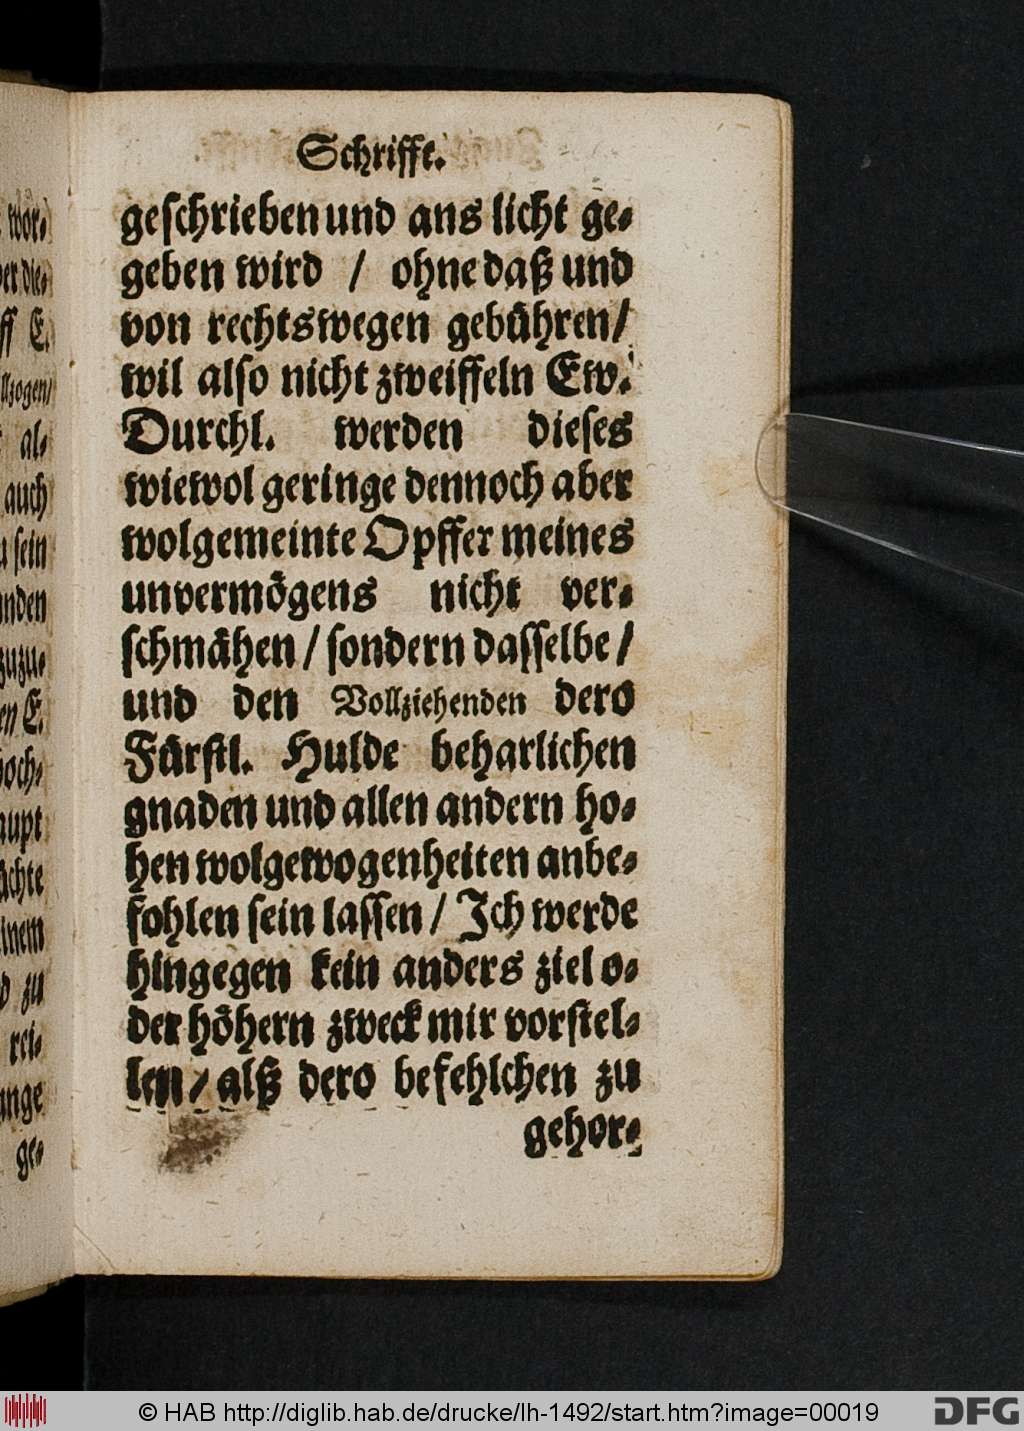 Schrifft.
geschrieben und ans licht ge-
geben wird / ohne daß und
von rechtswegen gebühren/
wil also nicht zweiffeln Ew.
Durchl. werden dieses
wiewol geringe dennoch aber
wolgemeinte Opffer meines
unvermögens nicht ver-
schmähen / sondern dasselbe /
und den Vollziehenden dero
Fürstl. Hulde beharlichen
gnaden und allen andern ho-
hen wolgewogenheiten anbe-
fohlen sein lassen / Ich werde
hingegen kein anders ziel o-
der höhern zweck mir vorstel-
len / alß dero befehlchen zu
gehor-
wor-
er die-
ff E.
llzogen/
al-
auch
sein
nden
zuzu-
en E.
hoch-
aupt
ächte
inem
zu
rei-
ange
ge-
© HAB http://diglib.hab.de/drucke/lh-1492/start.htm?image=00019
DFG